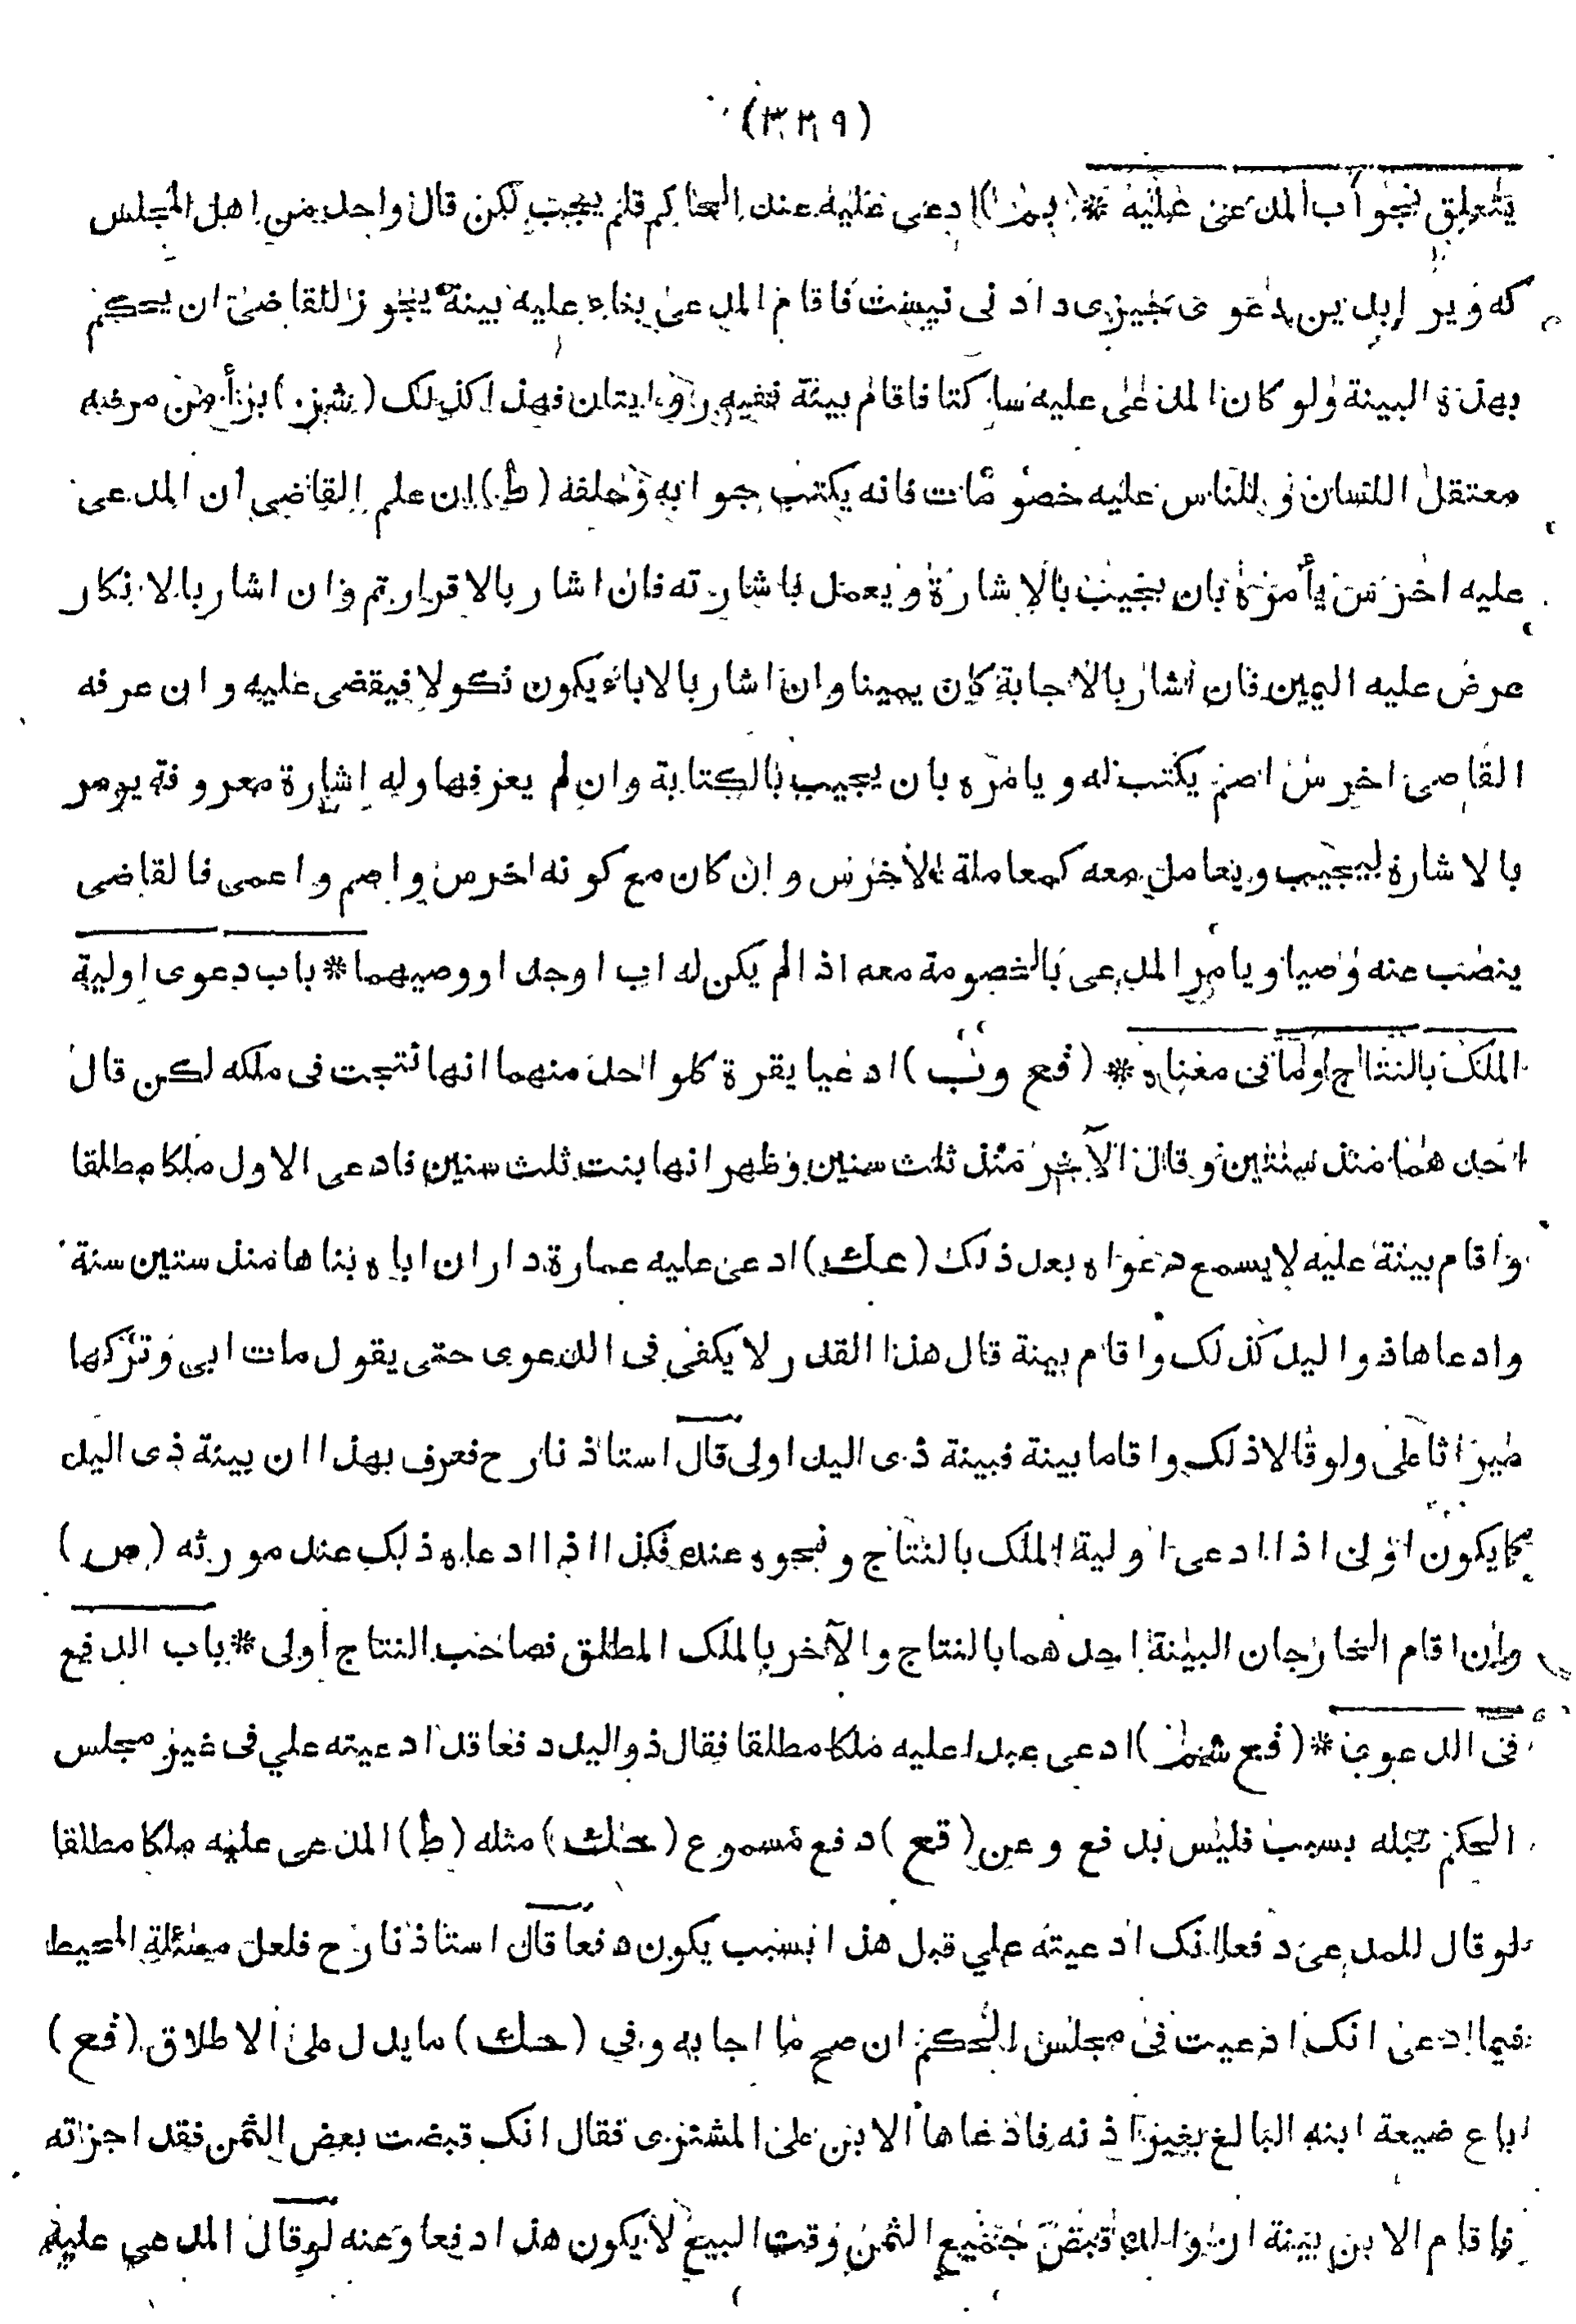 (٣٢٩)
يتعلق بجواب المدعى عليه * (بمز) ادعى عليه عند الحاكم فلم يجب لكن قال واحد من اهل المجلس
كه ويرا بدين دعوى چيزى دادنى نيست فاقام المدعى بناء عليه بينة يجوز للقاضى ان يحكم
بهذه البينة ولو كان المدعى عليه ساكتا فاقام بينة ففيه روايتان فهذا كذلك (شبزه) برأ من مرضه
معتقل اللسان وللناس عليه خصومات فانه يكتب جوابه وحلفه (ط) ان علم القاضى ان المدعى
عليه اخرس يأمره بان يجيب بالاشارة ويعمل باشارته فان اشار بالاقرار تم وان اشار بالانكار
عرض عليه اليمين فان اشار بالاجابة كان يمينا وان اشار بالاباء يكون نكولا فيقضى عليه وان عرفه
القاضى اخرس اصم يكتب له ويامره بان يجيب بالكتابة وان لم يعرفها وله اشارة معروفة يومر
بالاشارة ليجيب ويعامل معه كمعاملة الاخرس وان كان مع كونه اخرس واصم واعمى فالقاضى
ينصب عنه وصيا ويامر المدعى بالخصومة معه اذالم يكن له اب اوجد اووصيهما * باب دعوى اولية
الملك بالنتاج اوما فى معناه * (فع ونب) ادعيا بقرة كلواحد منهما انها نتجت فى ملكه لكن قال
احدهما منذ سنتين وقال الآخر منذ ثلث سنين وظهر انها بنت ثلث سنين فادعى الاول ملكا مطلقا
واقام بينة عليه لايسمع دعواه بعد ذلك (عك) ادعى عليه عمارة دار ان اباه بناها منذ ستين سنة
وادعاها ذواليد كذلك واقام بينة قال هذا القدر لايكفى فى الدعوى حتى يقول مات ابى وتركها
ميراثا على ولوقالا ذلك واقاما بينة فبينة ذى اليد اولى قال استاذنا رح فعرف بهذا ان بينة ذى اليد
كما يكون اولى اذا ادعى اولية الملك بالنتاج ونحوه عنده فكذا اذا ادعاه ذلك عند مورثه (ص)
وان اقام الخارجان البينة احدهما بالنتاج والآخر بالملك المطلق فصاحب النتاج أولى * باب الدفع
فى الدعوى * (فع شمز) ادعى عبدا عليه ملكا مطلقا فقال ذواليد دفعا قد ادعيته علي فى غير مجلس
الحكم قبله بسبب فليس بدفع وعن (قع) دفع مسموع (حك) مثله (ط) المدعى عليه ملكا مطلقا
لو قال للمدعى دفعا انك ادعيته علي قبل هذا بسبب يكون دفعا قال استاذنا رح فلعل مسئلة المحيط
فيما ادعى انك ادعيت فى مجلس الحكم ان صح ما اجابه وفي (حك) ما يدل على الاطلاق (فع)
باع ضيعة ابنه البالغ بغير اذنه فادعاها الابن على المشترى فقال انك قبضت بعض الثمن فقد اجزته
فاقام الابن بينة ان والده قبض جميع الثمن وقت البيع لايكون هذا دفعا وعنه لوقال المدعى عليه